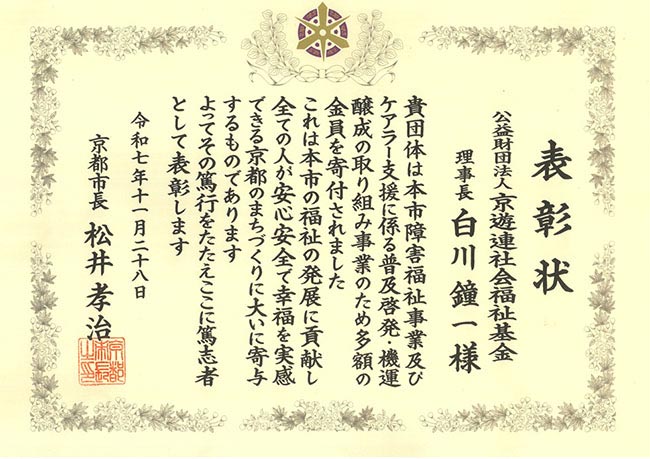 表彰状
公益財団法人 京遊連社会福祉基金
理事長 白川鐘一様
貴団体は本市障害福祉事業及び
ケアラー支援に係る普及啓発・機運
醸成の取り組み事業のため多額の
金員を寄付されました
これは本市の福祉の発展に貢献し
全ての人が安心安全で幸福を実感
できる京都のまちづくりに大いに寄与
するものであります
よってその篤行をたたえここに篤志者
として表彰します
令和七年十一月二十八日
京都市長 松井孝治
京都
市長
之印